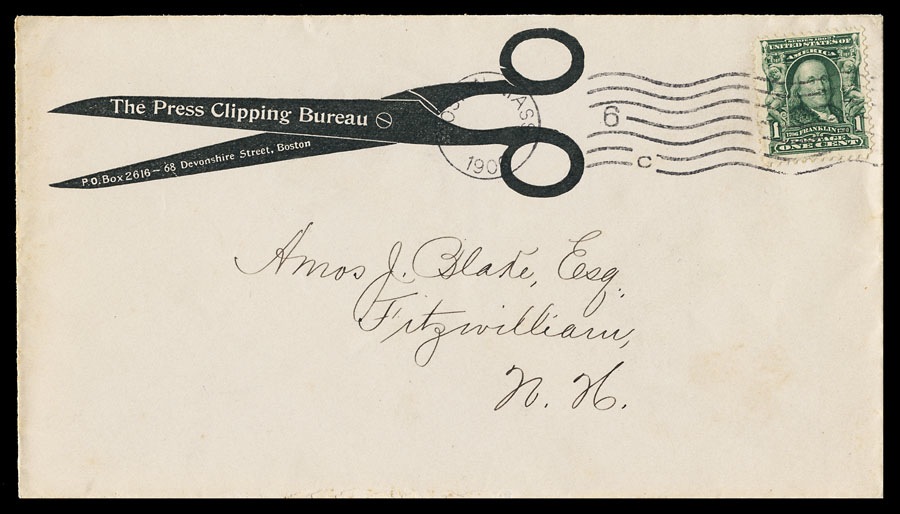 The Press Clipping Bureau
P.O. Box 2616 – 68 Devonshire Street, Boston
MASS
190
6
C
SERIES 1902
UNITED STATES OF
AMERICA
FRANKLIN
POSTAGE
1 ONE CENT 1
Amos J. Blake, Esq.
Fitzwilliam,
N. H.